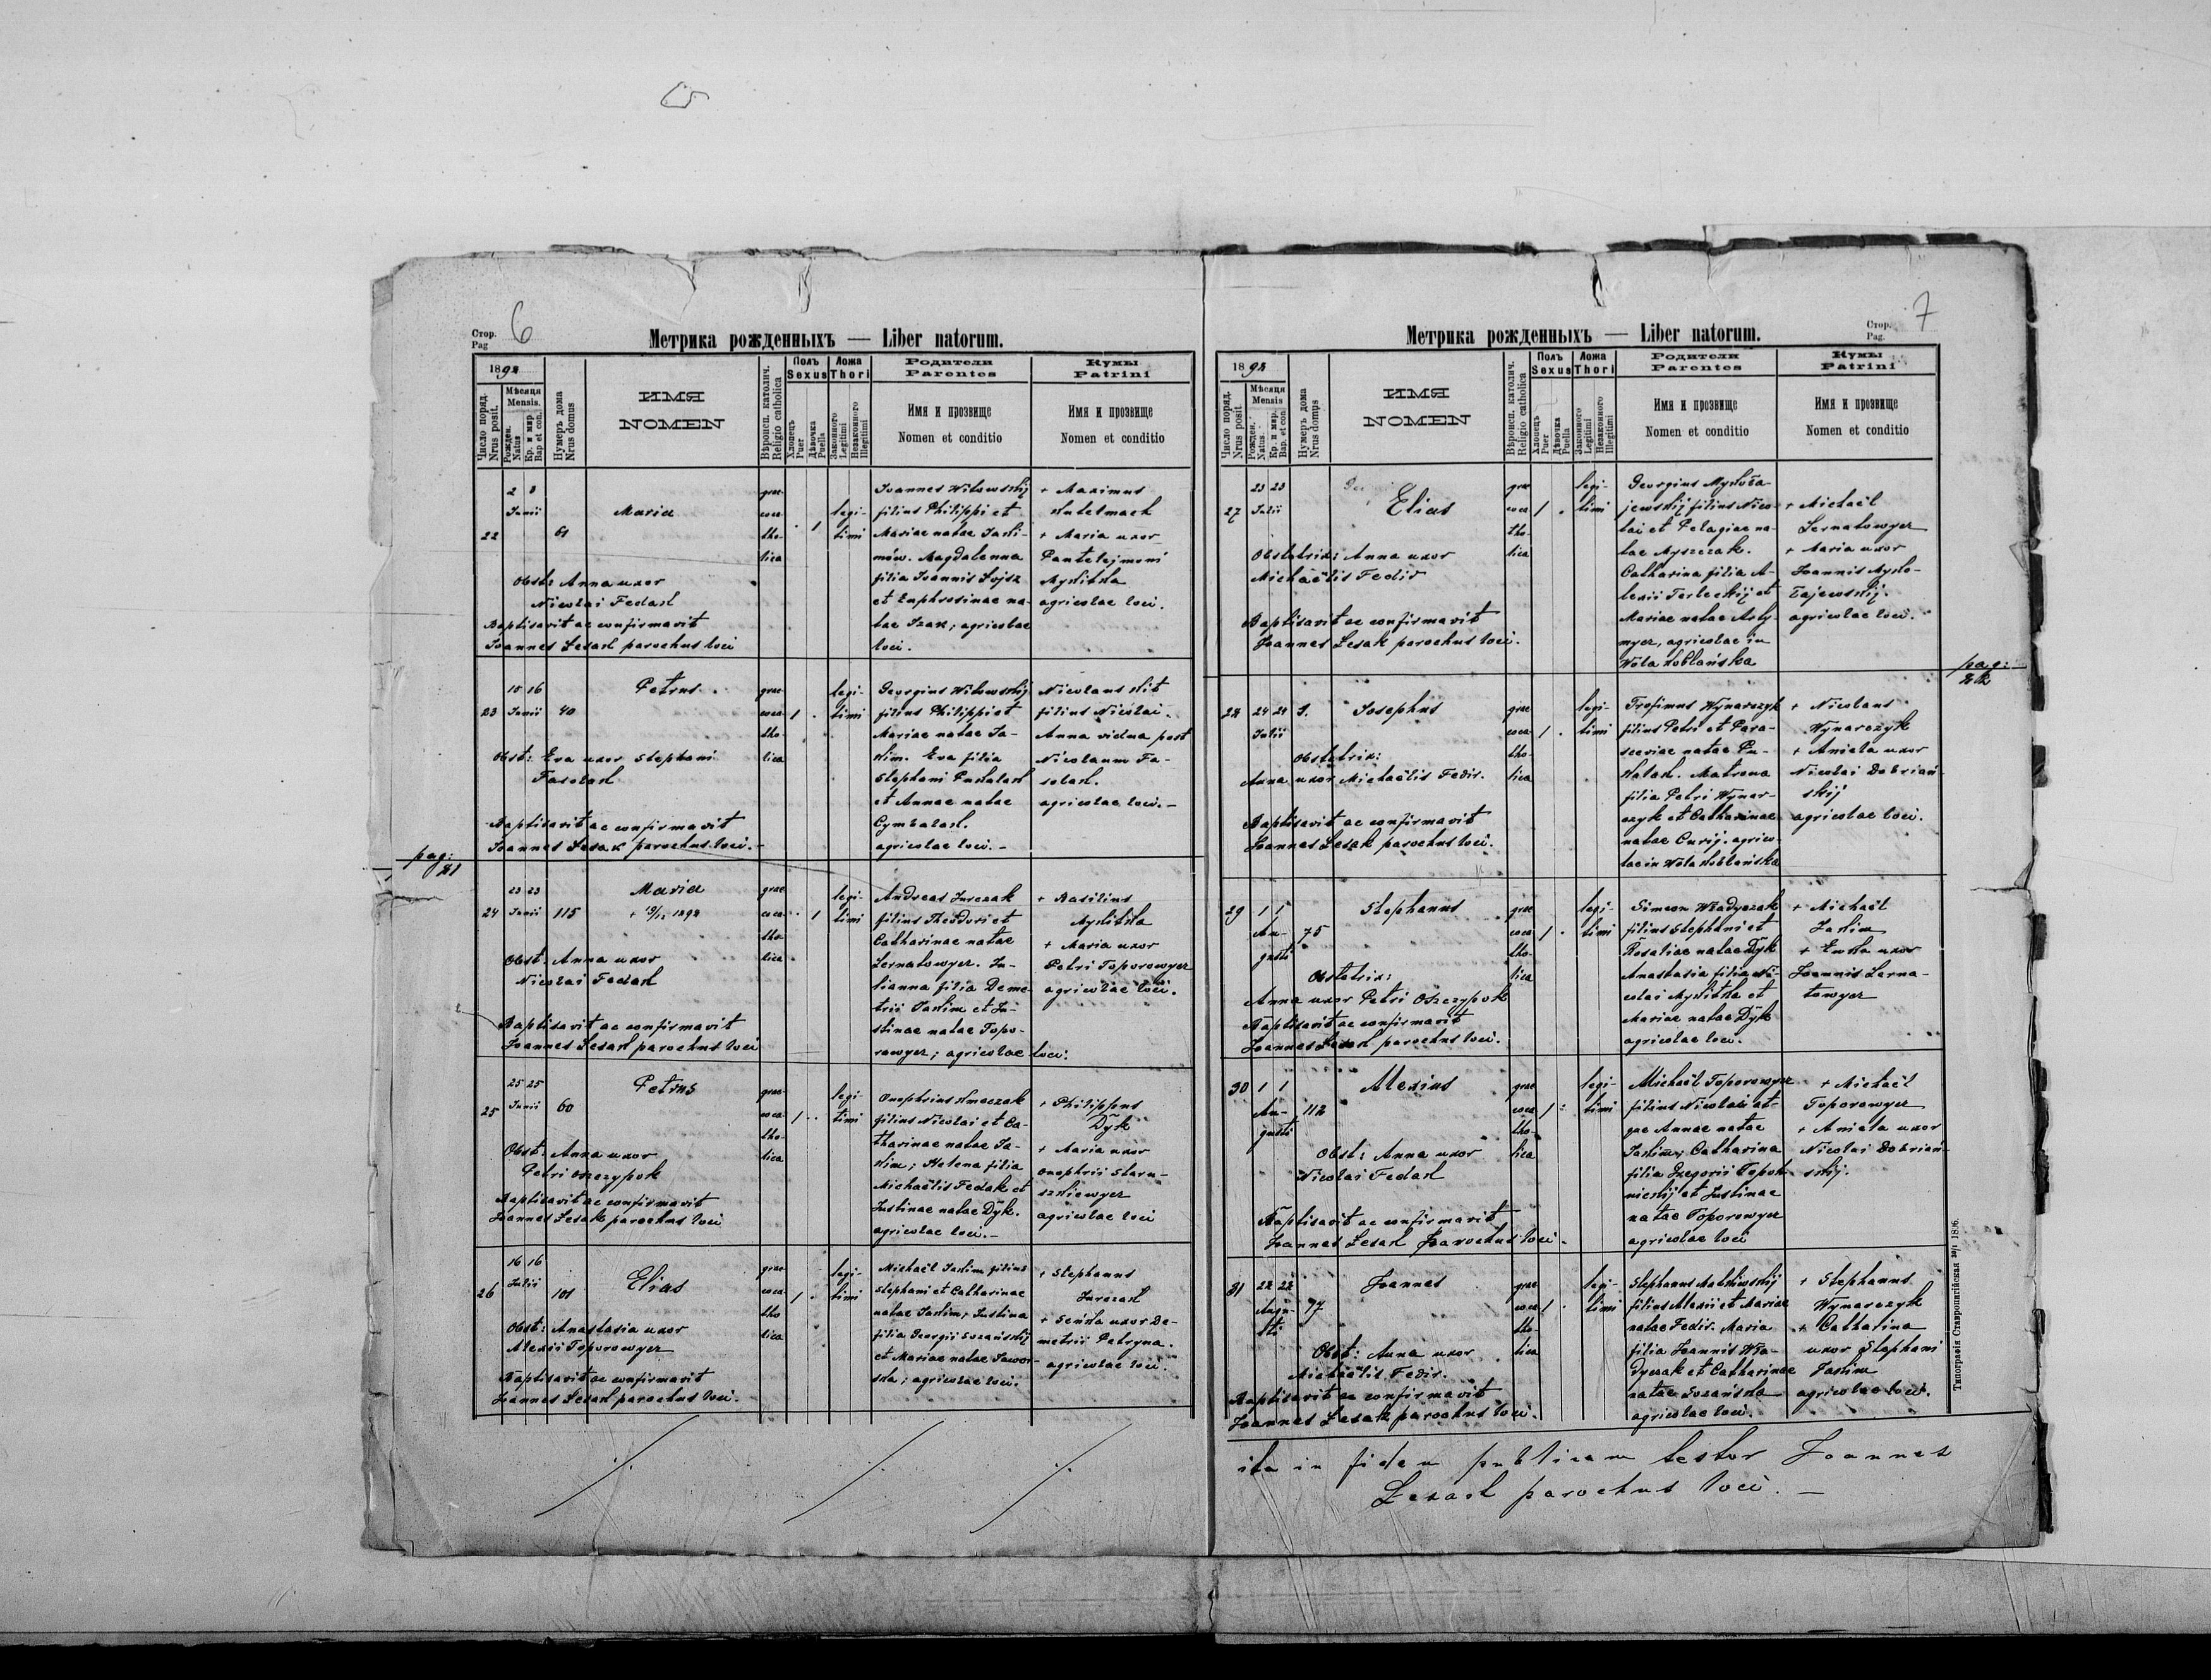 Стор.
Pag
6
Метрика рожденныхъ — Liber natorum.
1892
Число поряд.
Nrus posit.
Мѣсяця
Mensis.
Рожден.
Natus
Кр. и мир.
Bap et con.
Нумеръ дома
Nrus domus
ИМЯ
NOMEN
Вѣроисп. католич.
Religio catholica
Полъ
Sexus
Хлопецъ
Puer
Дѣвочка
Puella
Ложа
Thori
Законного
Legitimi
Незаконного
Illegitimi
Родители
Parentes
Имя и прозвище
Nomen et conditio
Кумы
Patrini
Имя и прозвище
Nomen et conditio
22
2 3
Junii
61
Maria
Obst: Anna uxor
Nicolai Fedak
Baptisavit ac confirmavit
Joannes Lesak parochus loci
grae-
coca-
tho-
lica
1
legi-
timi
Joannes Witowskij
filius Philippi et
Mariae natae Jaki-
mów. Magdalenna
filia Joannis Sojsz
et Euphrosinae na-
tae Izak; agricolae
loci.
+ Maximus
+ Maria uxor
Pantelejmoni
Mykitka
agricolae loci.
23
10 16
Junii
40
Petrus
Obst: Eva uxor Stephani
Fasolak
Baptisavit ac confirmavit
Joannes Lesak parochus loci.
grae-
coca-
tho-
lica
1
legi-
timi
Georgius Witowskij
filius Philippi et
Mariae natae Ja-
kim. Eva filia
Stephani
et Annae natae
Cymbalak.
agricolae loci.-
Nicolaus Kit
filius Nicolai.
Anna vidua post
Nicolaum Fa-
solak.
agricolae loci.-
pag:
21
24
23 23
Junii
115
Maria
Obst: Anna uxor
Nicolai Fedak
Baptisavit ac confirmavit
Joannes Lesak parochus loci
grae
coca-
tho-
lica
1
legi-
timi
Andreas Jurczak
filius Theodori et
Catharinae natae
Lernatowycz. Ju-
lianna filia Deme-
trii Jakim et Ju-
stinae natae Topo-
rowycz; agricolae loci.
+ Basilius
Mykitka
+ Maria uxor
Petri Toporowycz
agricolae loci.
25
25 25
Junii
60
Petrus
Obst: Anna uxor
Petri Oszczypok
Baptisavit ac confirmavit
Joannes Lesak parochus loci
grae-
coca-
tho-
lica
1
legi-
timi
filius Nicolai et Ca-
tharinae natae Ja-
kim; Helena filia
Michaëlis Fedak et
Justinae natae Dyk.
agricolae loci.-
+ Philippus
Dyk
+ Maria uxor
Onophrii Staru-
szkiewycz
agricolae loci
26
16 16
Julii
101
Elias
Obst: Anastasia uxor
Alexii Toporowycz
Baptisavit ac confirmavit
Joannes Lesak parochus loci.
grae-
coca-
tho
lica
1
legi-
timi
Michaël Jakim filius
Stephani et Catharinae
natae Jakim; Justina
filia Georgii Sozańskij
et Mariae natae Jawor-
ska; agricolae loci.
+ Stephanus
Jurczak
+ Seńka uxor De-
metrii Petryna.
agricolae loci.
Стор.
Pag.
7
Метрика рожденныхъ — Liber natorum.
1892
Число поряд.
Nrus posit.
Мѣсяця
Mensis
Рожден.
Natus
Кр. и мир.
Bap. et con
Нумеръ дома
Nrus domus
ИМЯ
NOMEN
Вѣроисп. католич.
Religio catholica
Полъ
Sexus
Хлопецъ
Puer
Дѣвочка
Puella
Ложа
Thori
Законного
Legitimi
Незаконного
Illegitimi
Родители
Parentes
Имя и прозвище
Nomen et conditio
Кумы
Patrini
Имя и прозвище
Nomen et conditio
27
23 23
Julii
Elias
Obstetrix: Anna uxor
Michaëlis Fedir
Baptisavit ac confirmavit
Joannes Lesak parochus loci.
grae
coca
tho-
lica
1
legi-
timi
Georgius
jewskij filius Nico-
lai et Pelagiae na-
tae Myszczak.
Catharina filia A-
lexii Terleckij et
Mariae natae
agricolae in
Wola Koblańska
+ Michaël
Lernatowycz
+ Maria uxor
Joannis
agricolae loci.
pag:
22
28
24 24
Julii
9.
Josephus
Obstetrix:
Anna uxor Michaëlis Fedir.
Baptisavit ac confirmavit
Joannes Lesak parochus loci.
grae
coca
tho-
lica
1
legi-
timi
Trofimus Wynarczyk
filius Petri et Para-
sceviae natae
Matrona
filia Petri Wynar-
czyk et Catharinae
natae Curij. agrico-
lae in Wola Koblańska
+ Nicolaus
Wynarczyk
+ Aniela uxor
Nicolai Dobriań-
skij
agricolae loci.
29
1 1
Au-
gusti
75
Stephanus
Obstetrix:
Anna uxor Petri Oszczypok
Baptisavit ac confirmavit
Joannes Lesak parochus loci.
grae
coca
tho-
lica
1
legi-
timi
Simeon Władyczak
filius Stephani et
Rosaliae natae Dyk
Anastasia filia Ni-
colai Mykitka et
Mariae natae Dyk
agricolae loci.
+ Michaël
Jakim
uxor
Joannis Lerna-
towycz
30
1 1
Au-
gusti
112
Alexius
Obst: Anna uxor
Nicolai Fedak
Baptisavit ac confirmavit
Joannes Lesak Parochus loci.
grae
coca
tho-
lica
1
legi-
timi
Michaël Toporowycz
filius Nicolai at-
que Annae natae
Jakim; Catharina
filia Gregorii
et Justinae
natae Toporowycz
agricolae loci
+ Michaël
Toporowycz
+ Aniela uxor
Nicolai Dobriań-
skij.
31
22 22
Augu-
sti
77
Joannes
Obst: Anna uxor
Michaëlis Fedir.
Baptisavit ac confirmavit
Joannes Lesak parochus loci.
grae
coca
tho-
lica
1
legi-
timi
Stephanus
filius Alexii et Mariae
natae Fedir. Maria
filia Joannis Wła-
dyczak et Catharinae
natae Sozańska
agricolae loci.
+ Stephanus
Wynarczyk
+ Catharina
uxor Stephani
Jakim
agricolae loci.
Типографія Ставропигійская
ita in fidem publicam testor Joannes
Lesak parochus loci. -